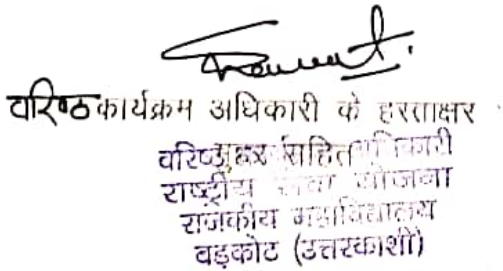 वरिष्ठ कार्यक्रम अधिकारी के हस्ताक्षर
मुहर सहित
वरिष्ठ अधिकारी
राष्ट्रीय सेवा योजना
राजकीय महाविद्यालय
वड़कोट (उत्तरकाशी)